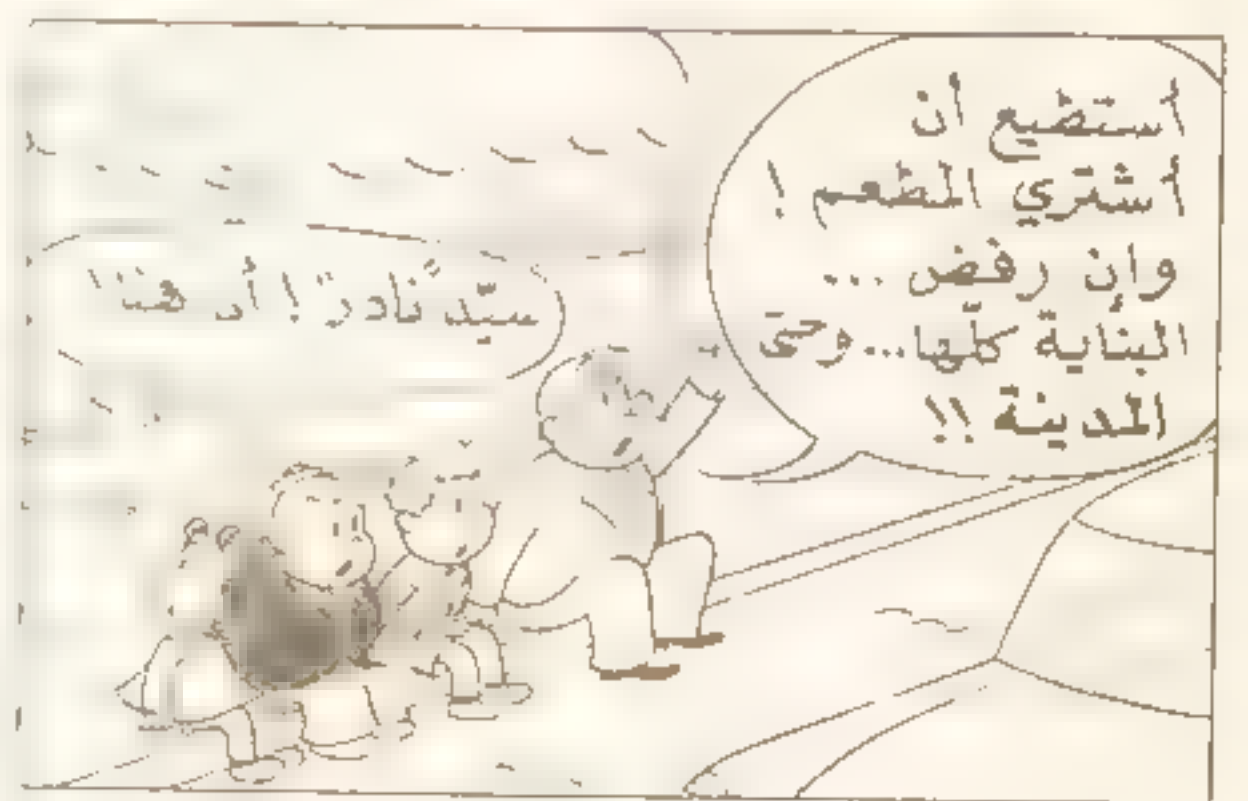 أستطيع أن
أشتري المطعم !
وإن رفض ...
البناية كلّها... وحتى
المدينة !!
سيّد نادر !